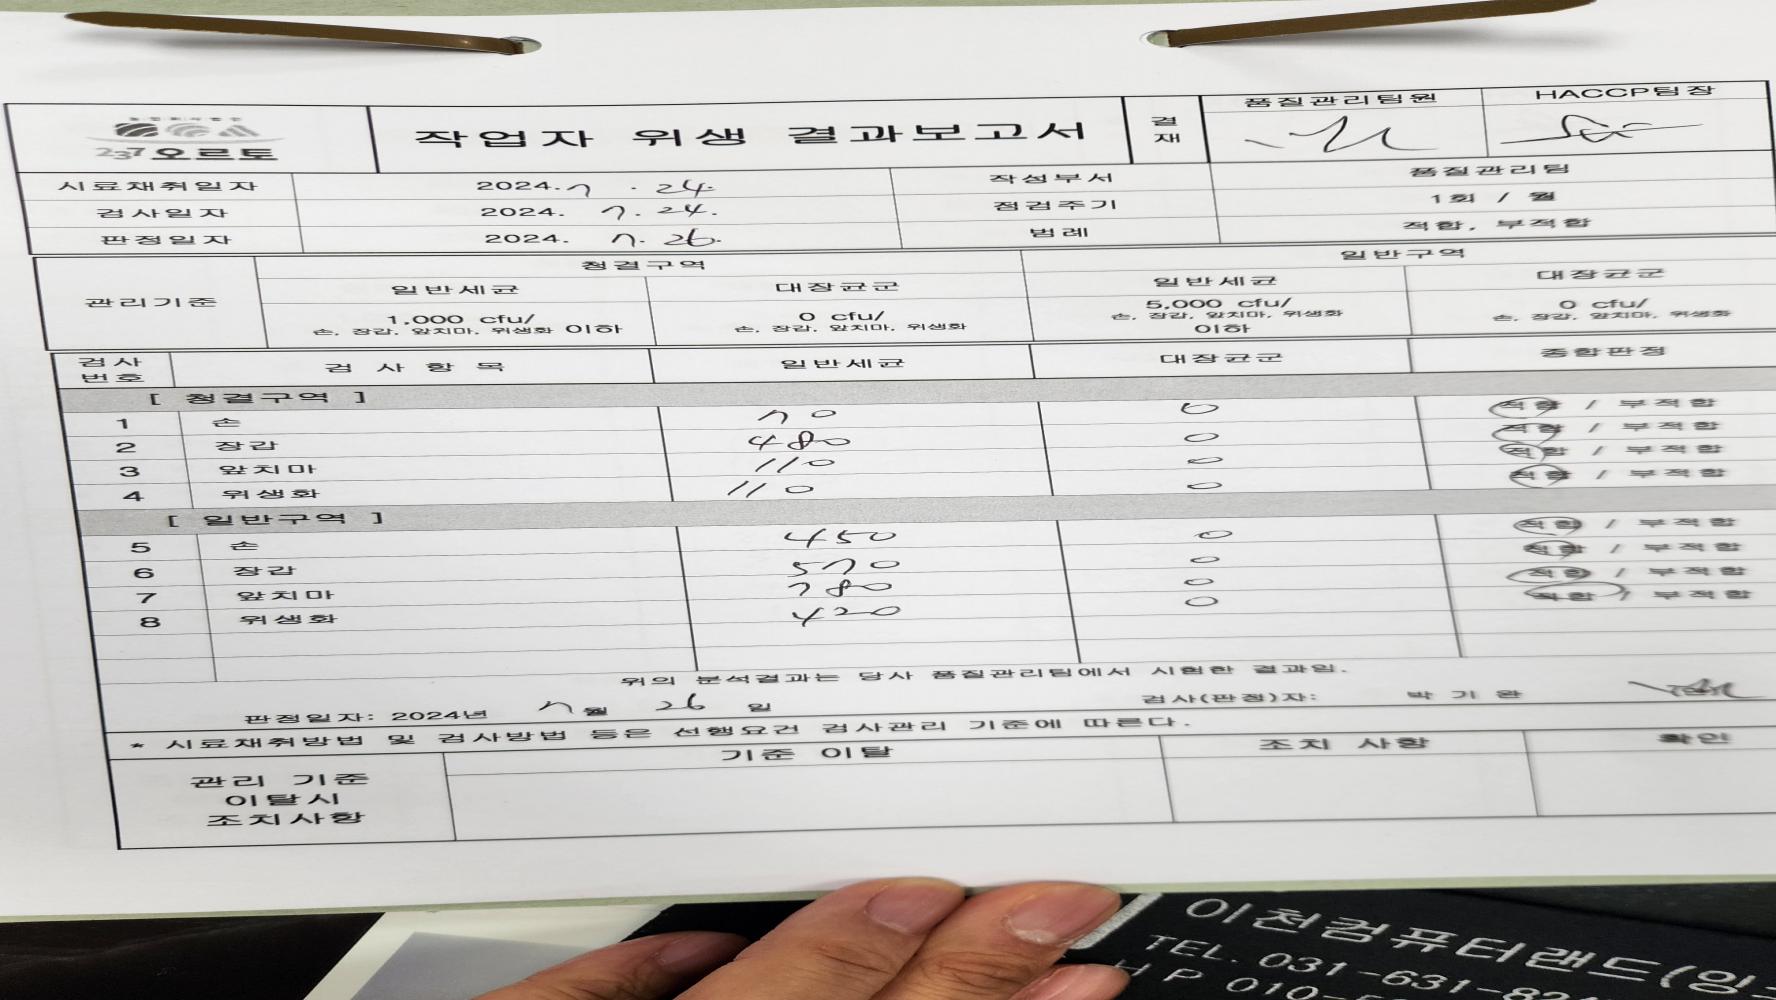 237 오르토
작업자 위생 결과보고서
결재
품질관리팀원
HACCP팀장
시료채취일자 2024. 7. 24. 작성부서 품질관리팀
검사일자 2024. 7. 24. 점검주기 1회 / 월
판정일자 2024. 7. 26. 범례 적합, 부적합
관리기준
청결구역 일반구역
일반세균 대장균군 일반세균 대장균군
1,000 cfu/ 0 cfu/ 5,000 cfu/ 0 cfu/
손, 장갑, 앞치마, 위생화 이하 손, 장갑, 앞치마, 위생화 손, 장갑, 앞치마, 위생화 이하 손, 장갑, 앞치마, 위생화
검사번호 검 사 항 목 일반세균 대장균군 종합판정
[ 청결구역 ]
1 손 70 0 적합 / 부적합
2 장갑 480 0 적합 / 부적합
3 앞치마 110 0 적합 / 부적합
4 위생화 110 0 적합 / 부적합
[ 일반구역 ]
5 손 450 0 적합 / 부적합
6 장갑 570 0 적합 / 부적합
7 앞치마 780 0 적합 / 부적합
8 위생화 420 0 적합 / 부적합
위의 분석결과는 당사 품질관리팀에서 시험한 결과임.
판정일자: 2024년 7월 26 일 검사(판정)자: 박 기 완
* 시료채취방법 및 검사방법 등은 선행요건 검사관리 기준에 따른다.
관리 기준 이탈시 조치사항
기준 이탈 조치 사항 확인
이천컴퓨터랜드
TEL. 031-631-
H P 010-